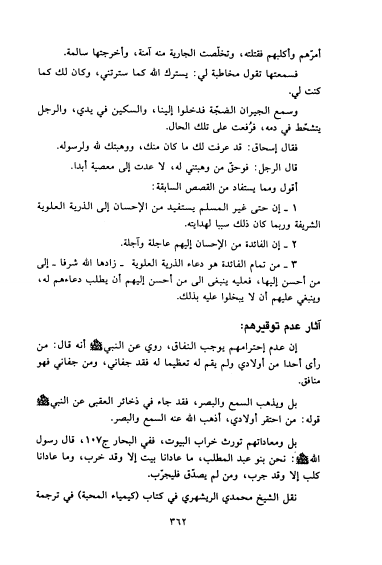 أمرّهم وأكلبهم فقتلته، وتخلّصت الجارية منه آمنة، وأخرجتها سالمة.
فسمعتها تقول مخاطبة لي: يسترك الله كما سترتني، وكان لك كما
كنت لي.
وسمع الجيران الضجّة فدخلوا إلينا، والسكين في يدي، والرجل
يتشحّط في دمه، فرُفعت على تلك الحال.
فقال إسحاق: قد عرفت لك ما كان منك، ووهبتك لله ولرسوله.
قال الرجل: فوحقّ من وهبتني له، لا عدت إلى معصية أبدا.
أقول ومما يستفاد من القصص السابقة:
١ ـ إن حتى غير المسلم يستفيد من الإحسان إلى الذرية العلوية
الشريفة وربما كان ذلك سببا لهدايته.
٢ ـ إن الفائدة من الإحسان إليهم عاجلة وآجلة.
٣ ـ من تمام الفائدة هو دعاء الذرية العلوية ـ زادها الله شرفا ـ إلى
من أحسن إليها، فعليه ينبغي الى من أحسن إليهم أن يطلب دعاءهم له،
وينبغي عليهم أن لا يبخلوا عليه بذلك.
آثار عدم توقيرهم:
إن عدم إحترامهم يوجب النفاق، روي عن النبي ﷺ أنه قال: من
رأى أحدا من أولادي ولم يقم له تعظيما له فقد جفاني، ومن جفاني فهو
منافق.
بل ويذهب السمع والبصر، فقد جاء في ذخائر العقبى عن النبي ﷺ
قوله: من احتقر أولادي، أذهب الله عنه السمع والبصر.
بل ومعاداتهم تورث خراب البيوت، ففي البحار ج١٠٧، قال رسول
الله ﷺ: نحن بنو عبد المطلب، ما عادانا بيت إلا وقد خرب، وما عادانا
كلب إلا وقد جرب، ومن لم يصدّق فليجرّب.
نقل الشيخ محمدي الريشهري في كتاب (كيمياء المحبة) في ترجمة
٣٦٢